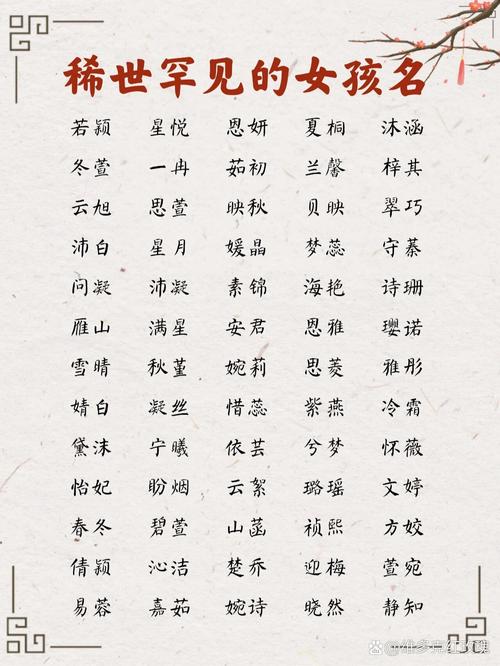 稀世罕见的女孩名
若颖 星悦 恩妍 夏桐 沐涵
冬萱 一冉 茹初 兰馨 梓其
云旭 思萱 映秋 贝映 翠巧
沛白 星月 媛晶 梦蕊 守蓁
问凝 沛凝 素锦 海艳 诗珊
雁山 满星 安君 恩雅 璎诺
雪晴 秋堇 婉莉 思菱 雅彤
婧白 凝丝 惜蕊 紫燕 冷霜
黛沫 宁曦 依芸 兮梦 怀薇
怡妃 盼烟 云絮 璐瑶 文婷
春冬 碧萱 山菡 祯熙 方姣
倩颖 沁洁 楚乔 迎梅 萱宛
易蓉 嘉茹 婉诗 晓然 静知